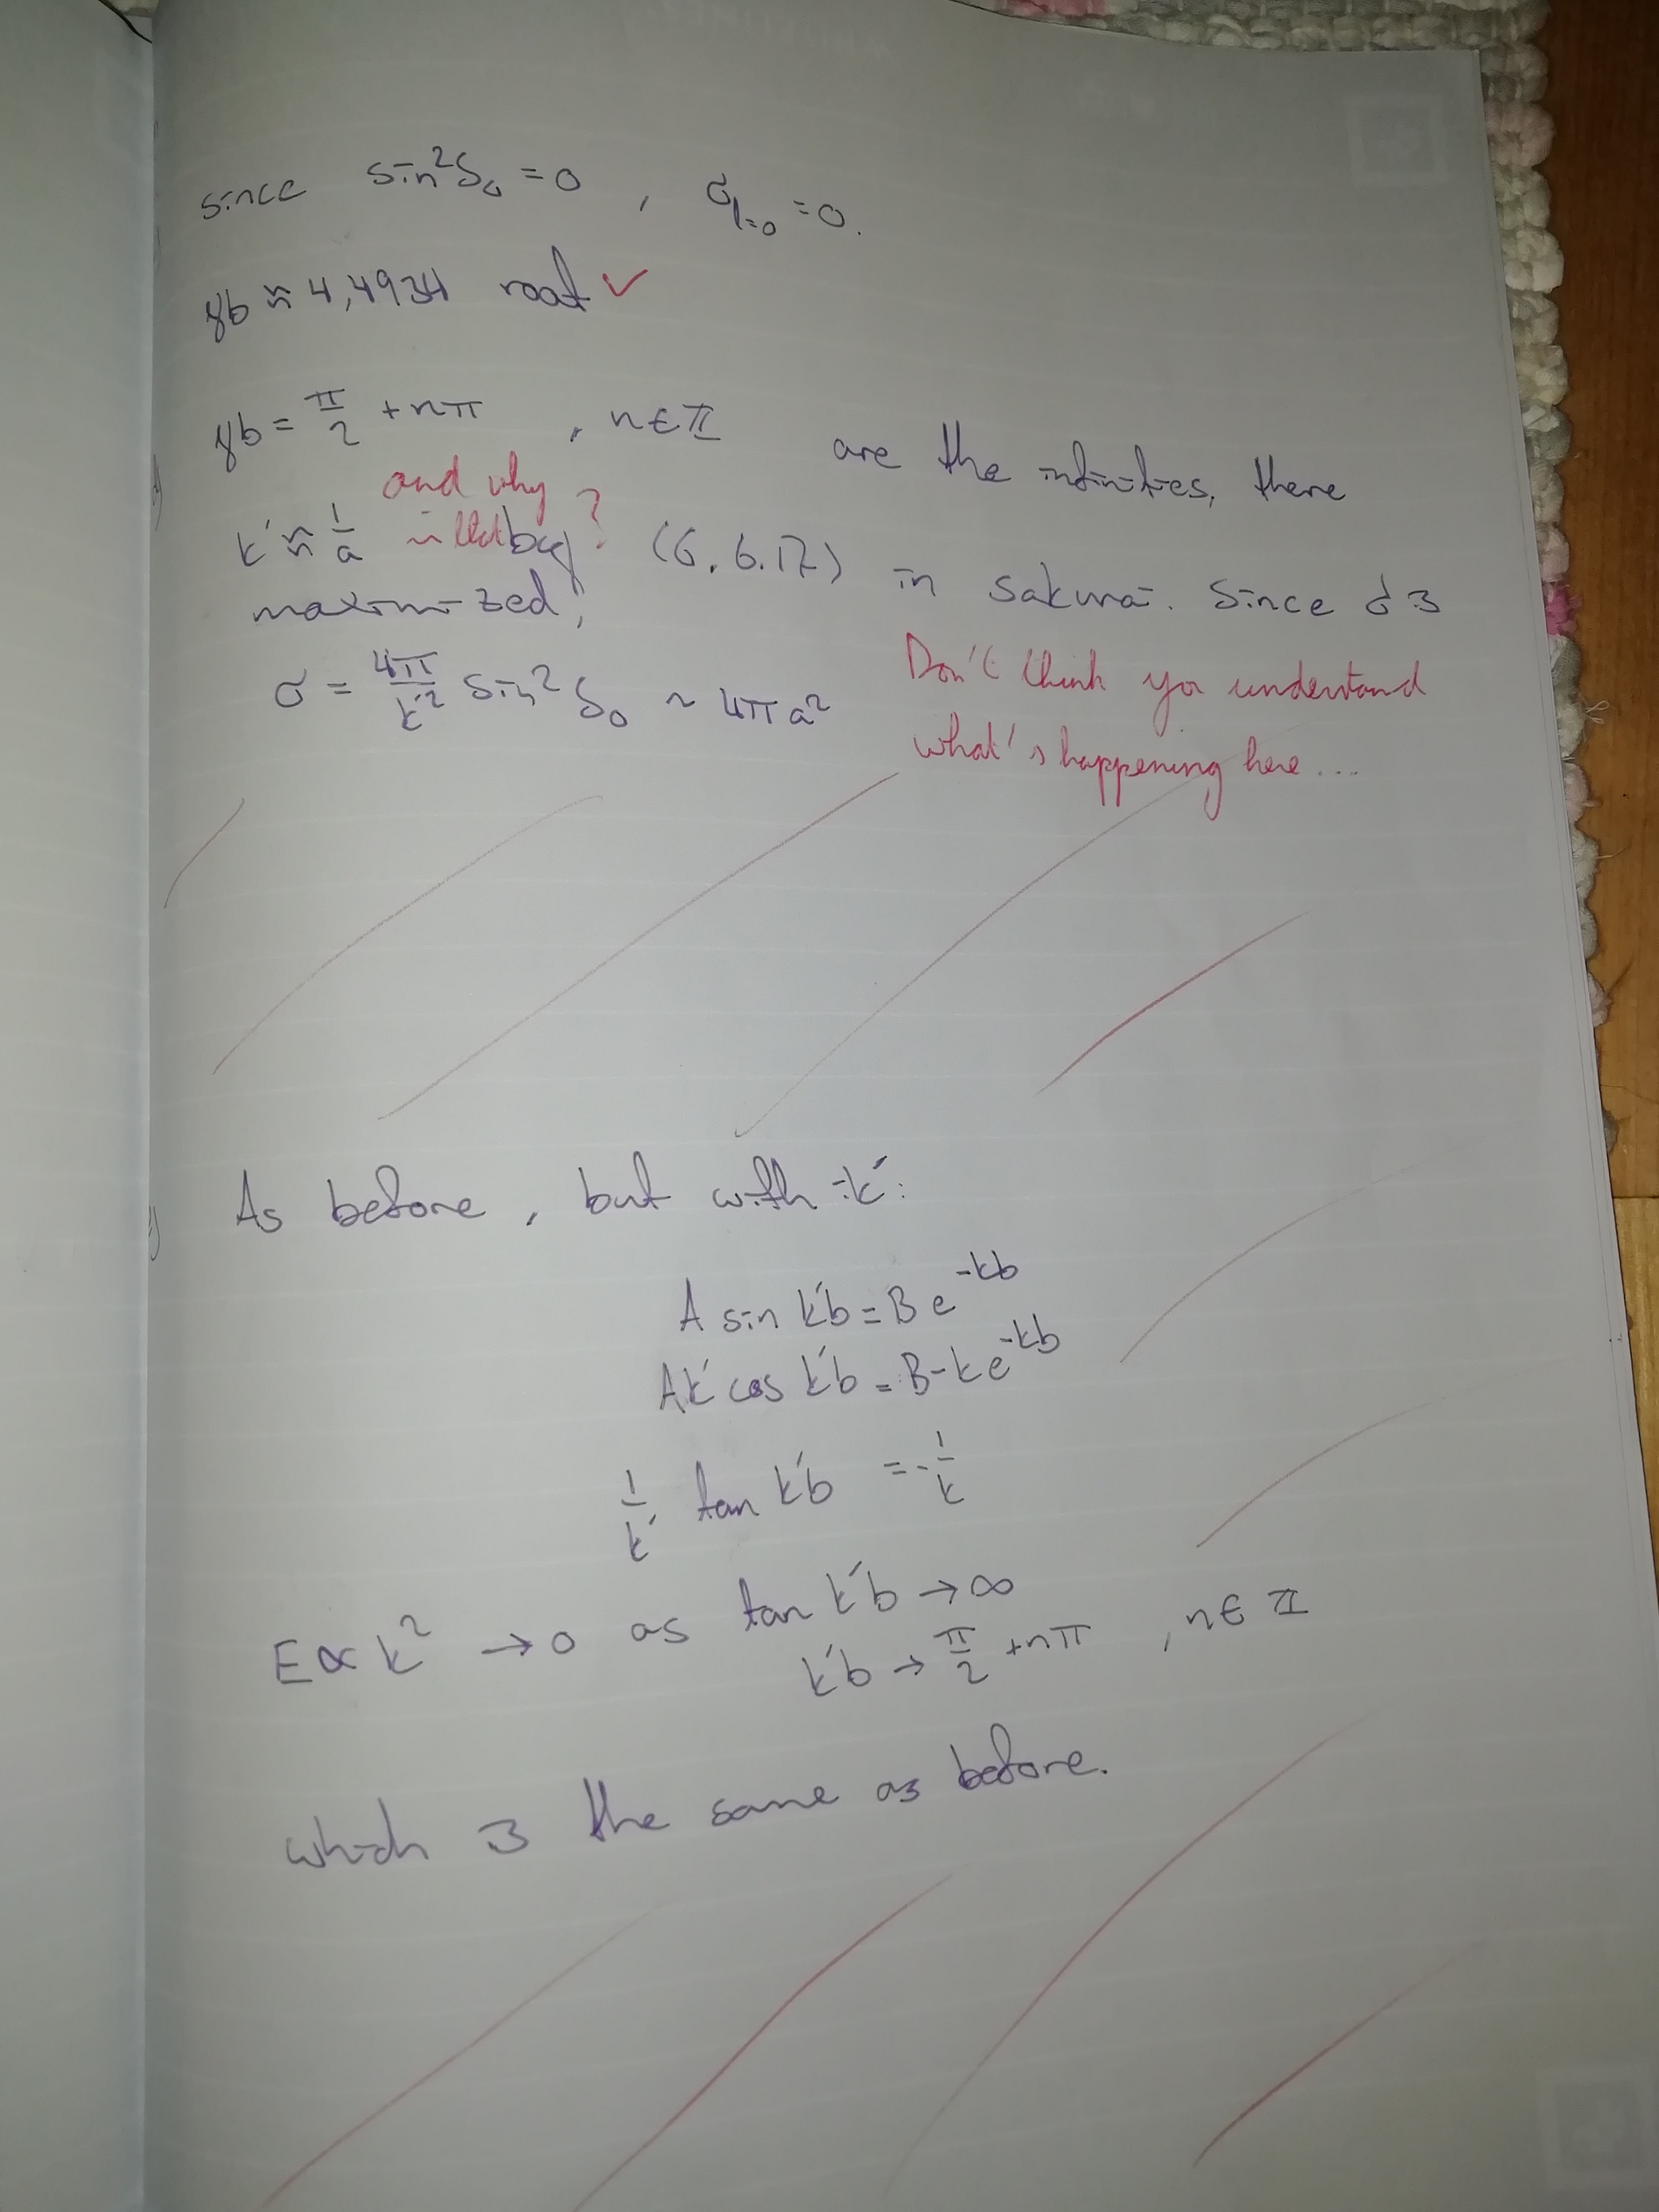 since sin²δ₀ = 0 , σₗ₌₀ = 0.
γb ≈ 4,4934 root ✓
γb = π/2 + nπ , n ∈ ℤ are the infinities, there
and why
k' ≈ 1/a is that big? (6.6.17) in Sakurai. Since σ is
maximized,
σ = 4π/k² sin²δ₀ ~ 4πa²
Don't think you understand
what's happening here...
As before, but with ik:
A sin k'b = B e^-kb
Ak' cos k'b = B-k e^-kb
1/k' tan k'b = -1/k
E ∝ k² → 0 as tan k'b → ∞
k'b → π/2 + nπ , n ∈ ℤ
which is the same as before.